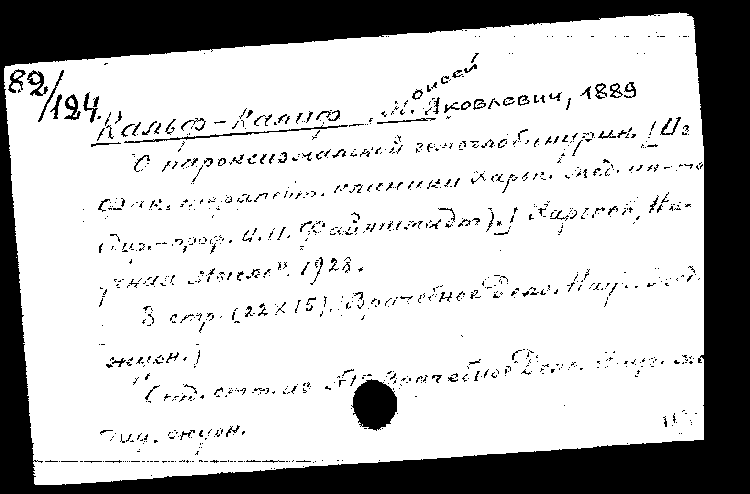 82/124
Кальф-Калиф М.оисей Яковлевич, 1889
О пароксизмальной гемоглобинурии. [Из
фак. терапевт. клиники Харьк. мед. ин-та
(Дир.-проф. И.И. Файншмидт).] Харьков, "На-
учная мысль". 1928.
8 стр. (22×15). (Врачебное Дело. Науч. мед.
журн.)
Отд. отт. из № Врачебное Дело. Науч. ме
журн.